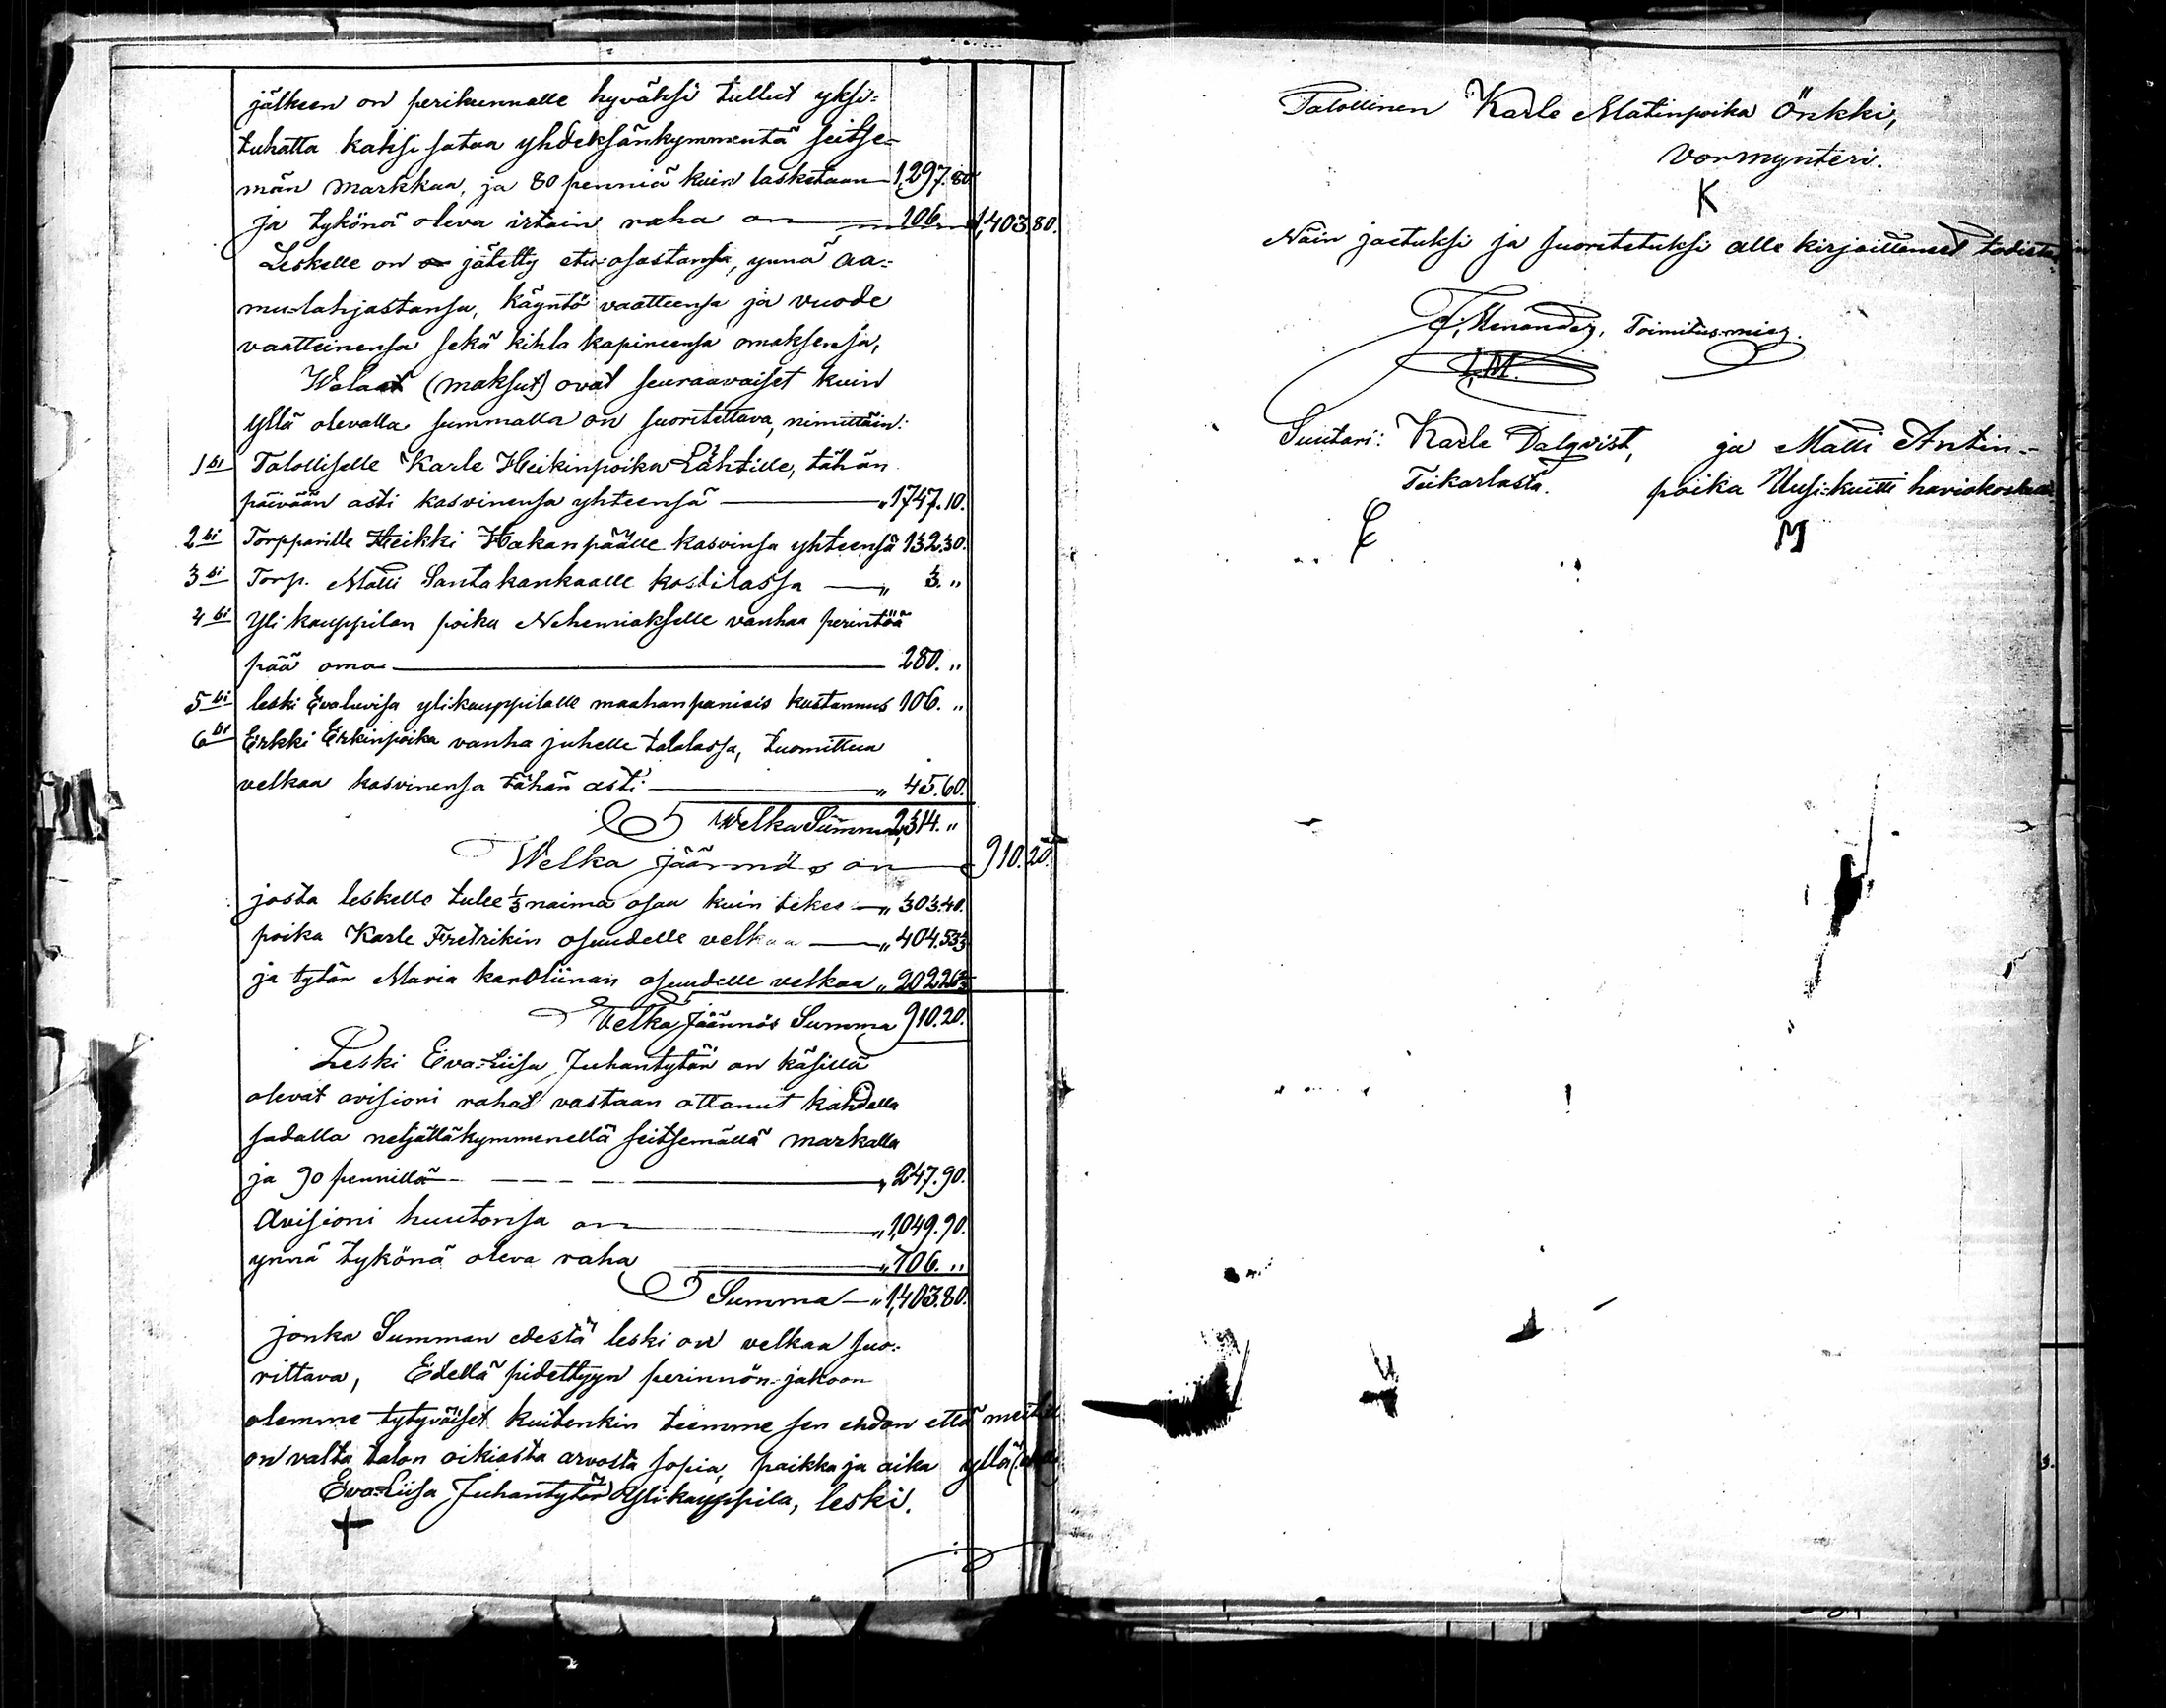 jälkeen on perikunnalle hyväksi tullut yksi=
tuhatta kaksi sataa yhdeksänkymmentä seitse=
män markkaa, ja 80 penniä kuin lasketaan 1,297.80.
ja tykönä oleva irtain raha on 106 1,403.80.
Leskelle on jätetty etu-osastansa, ynnä aa=
mu-lahjastansa, käyntö vaatteensa ja vuode
vaatteinensa sekä kihla kapineensa omaksensa,
Welaat (maksut) ovat seuraavaiset kuin
yllä olevalla summalla on suoritettava, nimittäin:
1 ksi Talolliselle Karle Heikinpoika Lähtille, tähän
päivään asti kasvinensa yhteensä „ 1747.10.
2 ksi Torpparille Heikki Hakanpäälle kasvinsa yhteensä 132.30.
3 ksi Torp. Matti Santakankaalle kostilassa „ 3. „
4 ksi Yli kauppilan poika Nehemiakselle vanhaa perintöä
pää oma 280. „
5 ksi leski Evaluvisa ylikauppilalle maahanpaniais kustannus 106. „
6 ksi Erkki Erkinpoika vanha juhelle talalassa, tuomittua
velkaa kasvinensa tähän asti „ 45.60.
Welka Summa 2,314. „
Welka jäännös on 910.20.
josta leskelle tulee 1/3 naima osaa kuin tekee „ 303.40.
poika Karle Fretrikin osuudelle velkaa „ 404.53 1/3
ja tytär Maria karoliinan osuudelle velkaa „ 202.26 2/3
Velka Jäännös Summa 910.20.
Leski Eva=Liisa Juhantytär on käsillä
olevat avisioni rahat vastaan ottanut kahdella
sadalla neljälläkymmenellä seitsemällä markalla
ja 90 pennillä „ 247.90.
Avisioni huutonsa on „ 1,049.90.
ynnä tykönä oleva raha „ 106. „
Summa „ 1,403.80.
jonka Summan edestä leski on velkaa suo=
rittava, Edellä pidettyyn perinnön-jakoon
olemme tytyväiset kuitenkin teemme sen ehdon että
on valta talon oikiasta arvosta sopia, paikka ja aika yllä
Eva=Liisa Juhantytär Ylikauppila, leski.
Talollinen Karle Matinpoika Önkki,
vormynteri.
K
Näin jaetuksi ja suoritetuksi alle kirjoittaneet
Menander, Toimitus-mies.
Suutari: Karle Dalqvist, ja Matti Antin=
Teikarlasta. poika Uusi=kuitti
M